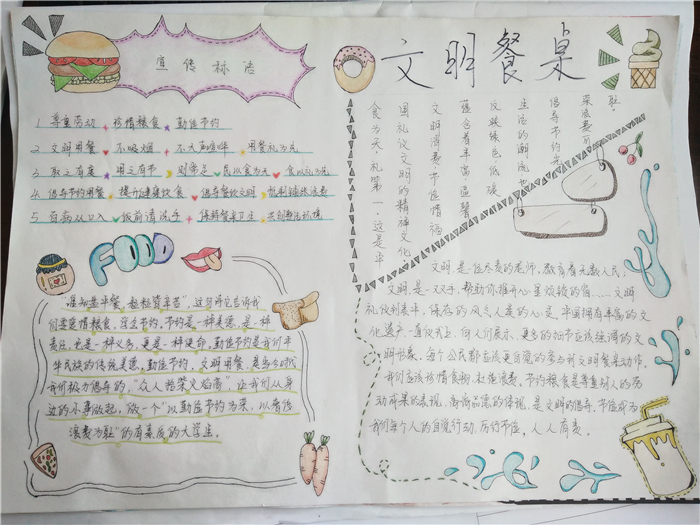 宣传标语
文明餐桌
1 尊重劳动 珍惜粮食 勤俭节约
2 文明用餐 不吸烟 不大声喧哗 用餐礼为先
3 取之有度 用之有节 则常足 民以食为天 食以礼为先
4 倡导节约用餐 提升健康饮食 倡导餐饮文明 抵制铺张浪费
5 百病从口入 饭前请洗手 保持餐桌卫生 共创整洁环境
FOOD
"谁知盘中餐，粒粒皆辛苦"，这句诗它告诉我
们要爱惜粮食，注意节约。节约是一种美德，是一种
责任，也是一种义务，更是一种使命，勤俭节约是我们中
华民族的传统美德，勤俭节约，文明用餐，是当今时代
我们极力倡导的，"众人拾柴火焰高"，让我们从身
边的小事做起，做一个"以勤俭节约为荣，以奢侈
浪费为耻"的有素质的大学生。
食为天，礼第一，这是中
国礼仪文明的精神文化
文明消费节俭情福
蕴含着丰富温馨
反映绿色低碳
生活的潮流
倡导节约光
荣浪费可
耻。
文明是一位尽责的老师，教育着无数人民，
文明是一双双手，帮助你推开心里烦恼的窗……文明
礼仪到未来，保存的风气人类的心是，中国拥有丰富的文
化遗产一直仅我上，向人们展示，更多的细节应该强调的文
明形象，每个公民都应该更自觉的参与对文明餐桌动作。
我们应该珍惜食物，杜绝浪费，节约粮食是尊重对人的劳
动成果的表现，高尚品德的体现，是文明的倡导，节俭成为
我们每个人的自觉行动，厉行节俭，人人有责。